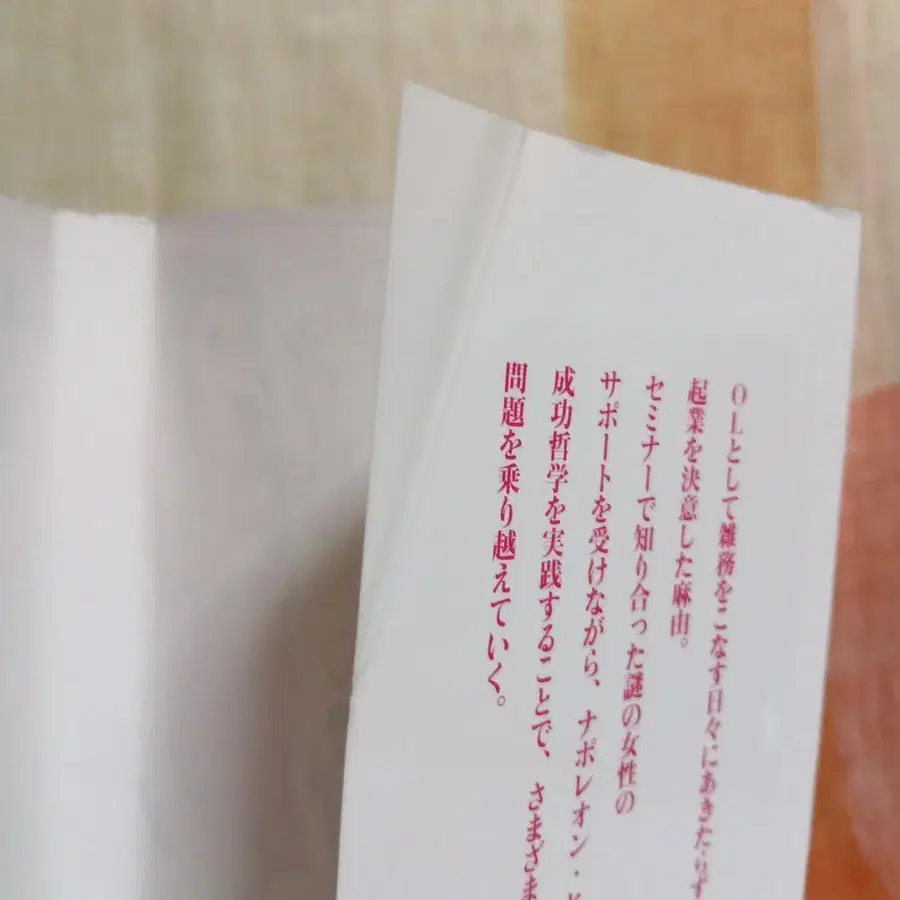 OLとして雑務をこなす日々にあきたらず
起業を決意した麻由。
セミナーで知り合った謎の女性の
サポートを受けながら、ナポレオン・
成功哲学を実践することで、さまざま
問題を乗り越えていく。